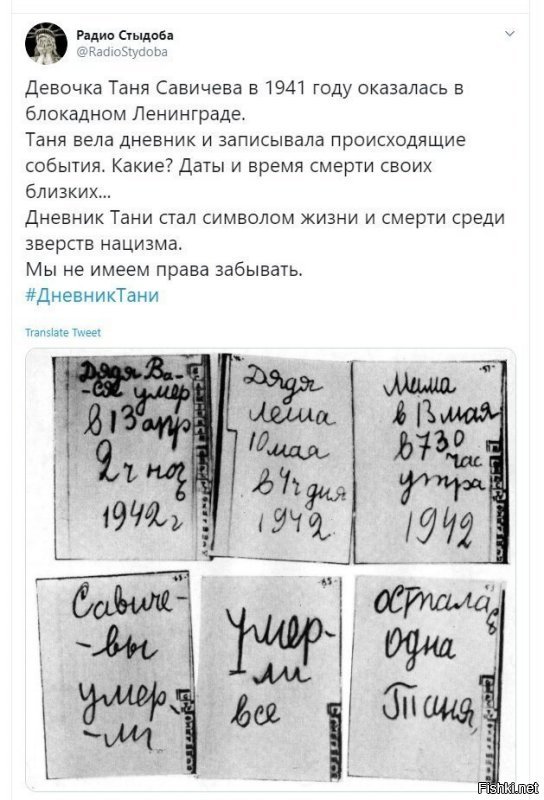 Радио Стыдоба
@RadioStydoba
Девочка Таня Савичева в 1941 году оказалась в
блокадном Ленинграде.
Таня вела дневник и записывала происходящие
события. Какие? Даты и время смерти своих
близких...
Дневник Тани стал символом жизни и смерти среди
зверств нацизма.
Мы не имеем права забывать.
#ДневникТани
Translate Tweet
Дядя Ва-
-ся умер
в 13 апр
2 ч ноч
1942 г
Дядя
Леша
10 мая
в 4 ч дня
1942
Мама
в 13 мая
в 7 30
час
утра
1942
Савиче-
-вы
умер
-ли
умер-
-ли
все
остала
сь
одна
Таня
Fishki.net